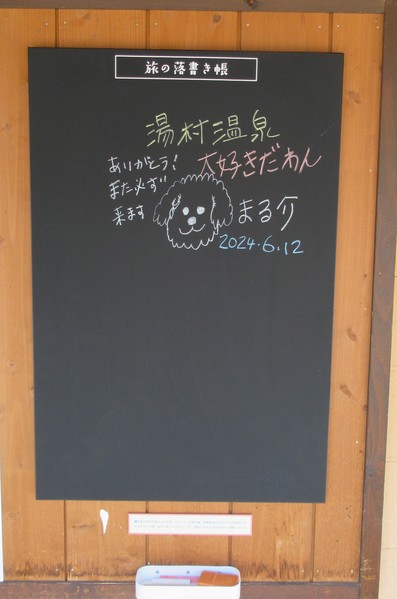 旅の落書き帳
湯村温泉
大好きだわん
ありがとう!
また必ず
来ます
まる介
2024.6.12